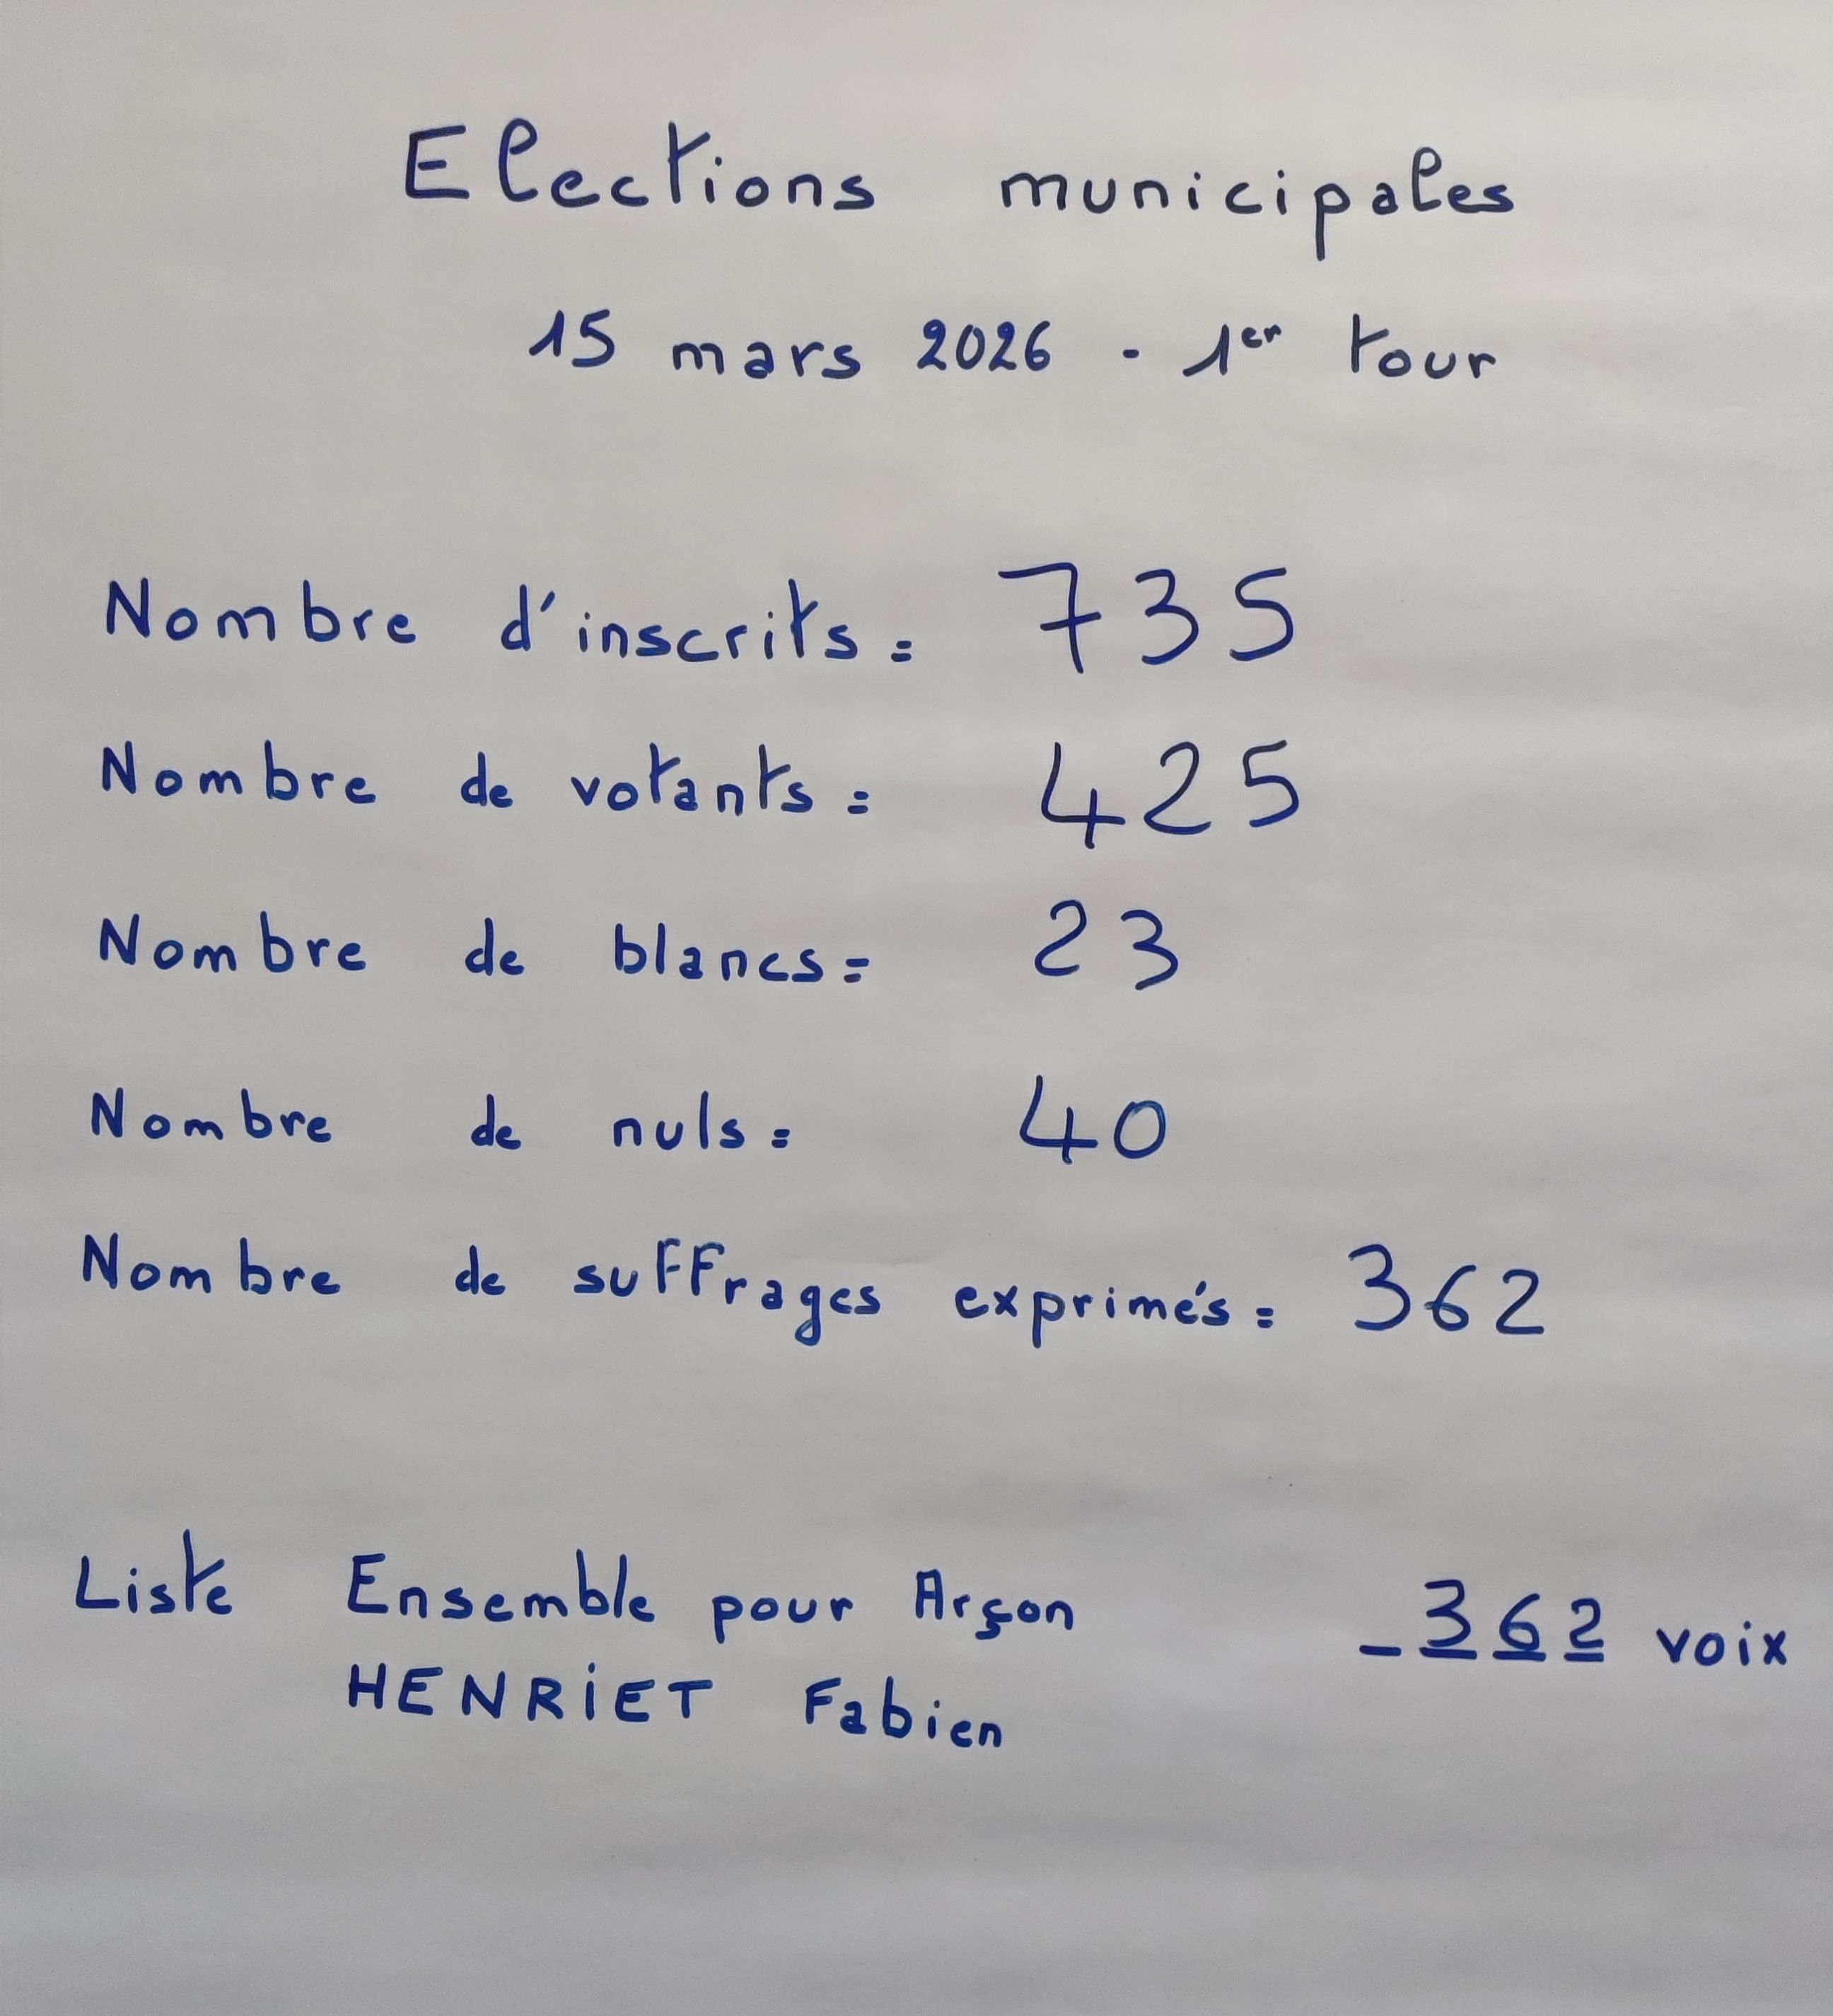 Elections municipales
15 mars 2026 - 1er tour
Nombre d'inscrits = 735
Nombre de votants = 425
Nombre de blancs = 23
Nombre de nuls = 40
Nombre de suffrages exprimés = 362
Liste Ensemble pour Arçon - 362 voix
HENRIET Fabien